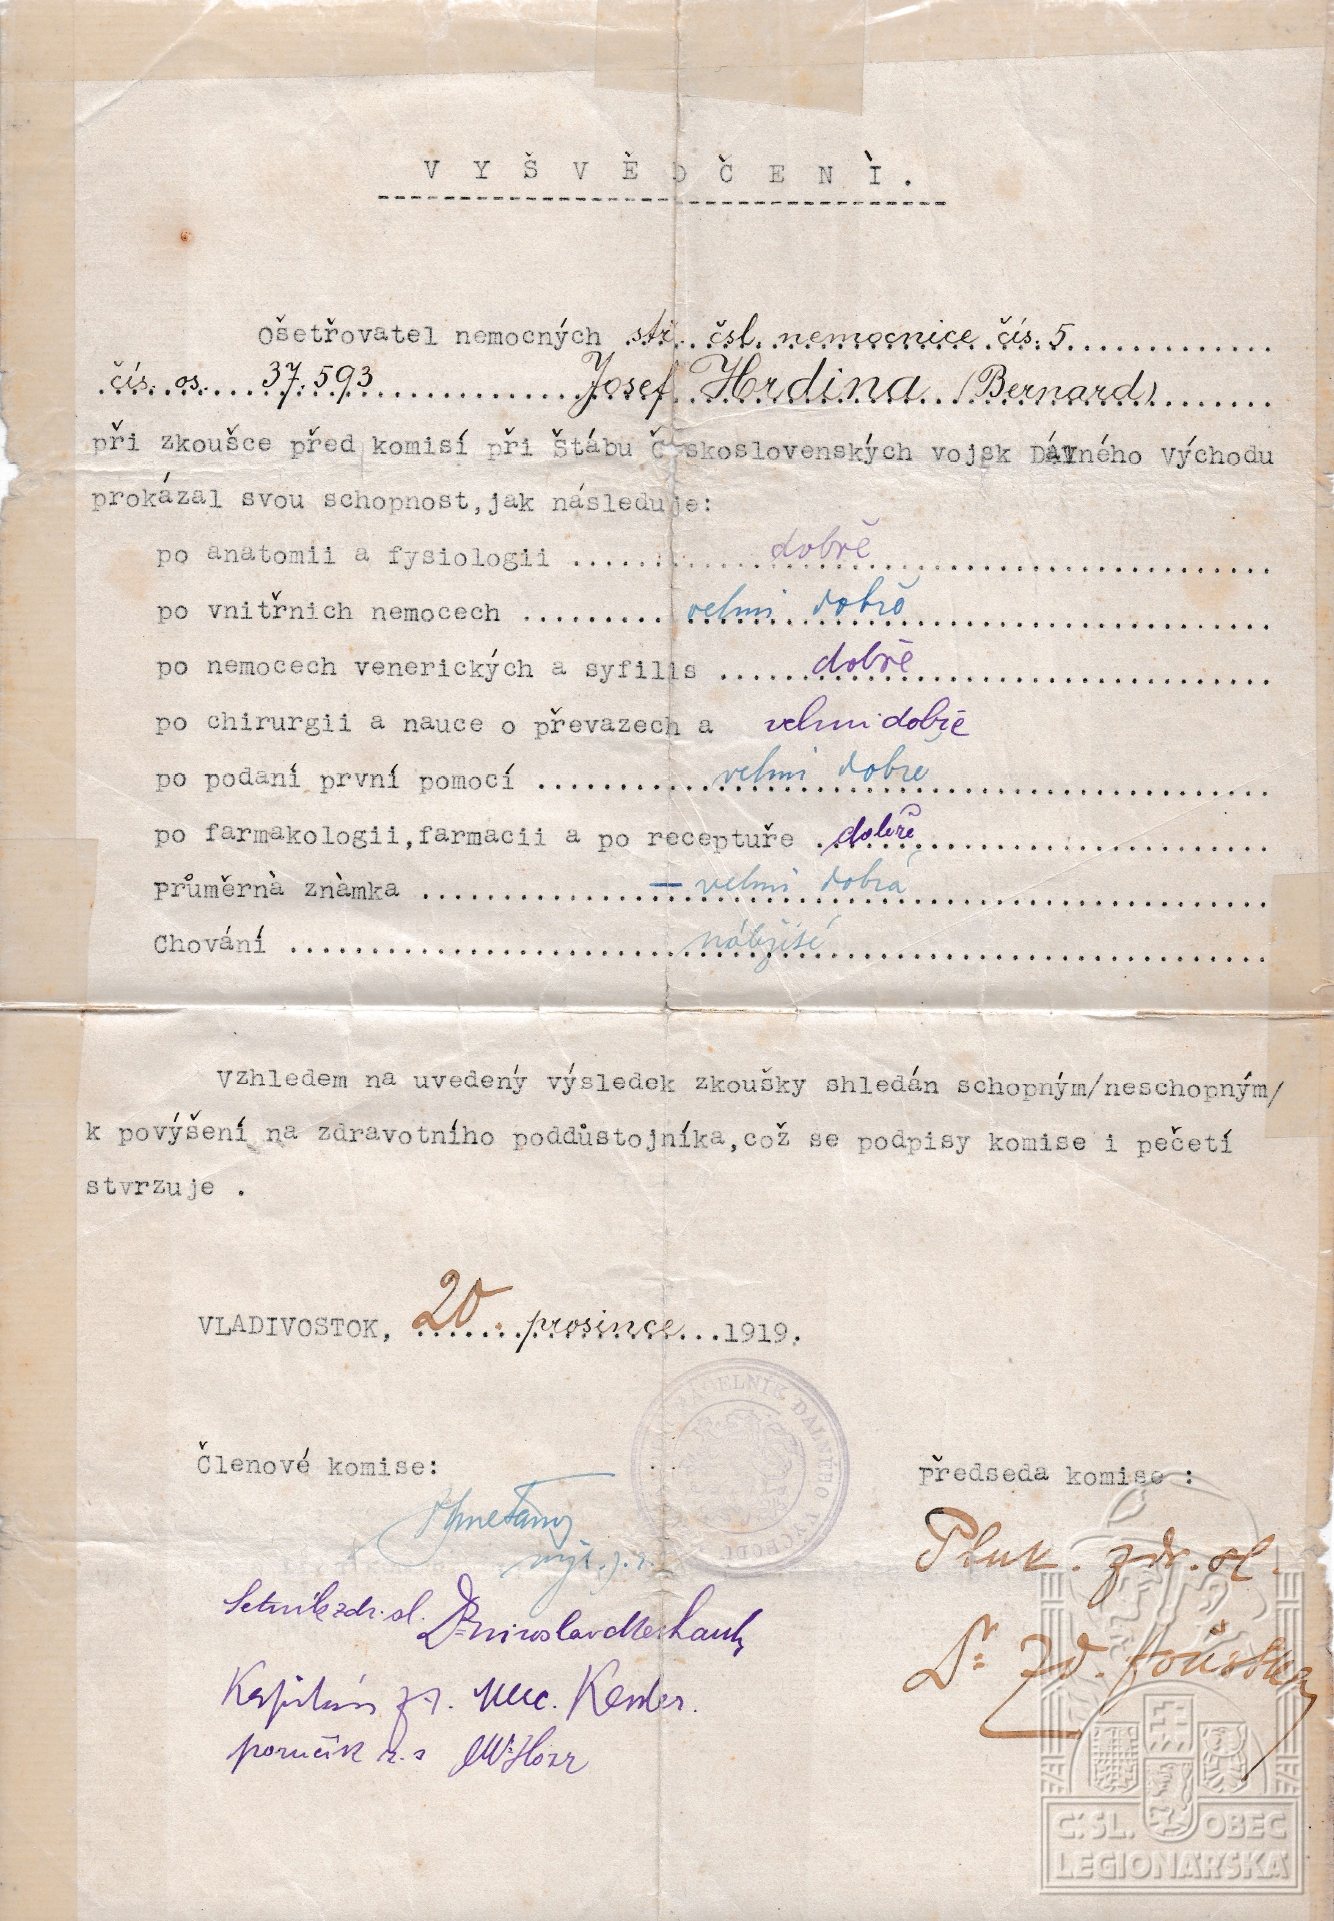 VYŠVĚDČENÌ.
Ošetřovatel nemocných stř. čsl. nemocnice čís. 5
čís. os. 37.593 Josef Hrdina (Bernard)
při zkoušce před komisí při Štábu Č skoslovenských vojsk Dálného Východu
prokázal svou schopnost,jak následuje:
po anatomii a fysiologii dobře
po vnitřnich nemocech velmi dobře
po nemocech venerických a syfilis dobře
po chirurgii a nauce o převazech a velmi dobře
po podaní první pomocí velmi dobře
po farmakologii,farmacii a po receptuře dobře
průměrnà znàmka – velmi dobrá
Chování
Vzhledem na uvedený výsledek zkoušky shledán schopným/neschopným/
k povýšení na zdravotního poddůstojníka,což se podpisy komise i pečetí
stvrzuje .
VLADIVOSTOK, 20. prosince 1919.
NÁČELNÍK DALNÉHO VÝCHODU
Členové komise:
Předseda komise :
Pluk. zdr. sl.
Dr Zd.
Setník zdr. sl. Dr Miroslav
Kapitán
poručík
Č.SL. OBEC
LEGIONÁŘSKÁ